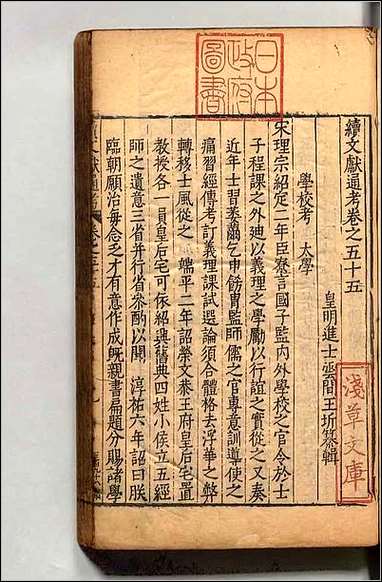 日本
政府
圖書
續文獻通考卷之五十五
皇明進士雲間王圻纂輯
淺草文庫
學校考　太學
宋理宗紹定二年臣寮言國子監內外學校之官令於士
子程課之外迪以義理之學勵以行誼之實從之又奏
近年士習委薾乞申飭胄監師儒之官專意訓導使之
痛習經傳考訂義理課試選論須合體格去浮華之弊
轉移士風從之　端平二年詔榮文恭王府皇后宅置
教授各一員皇后宅可依紹興舊典四姓小侯立五經
師之遺意三省并行省參酌以聞　淳祐六年詔曰朕
臨朝願治每念乏才有意作成旣親書扁題分賜諸學